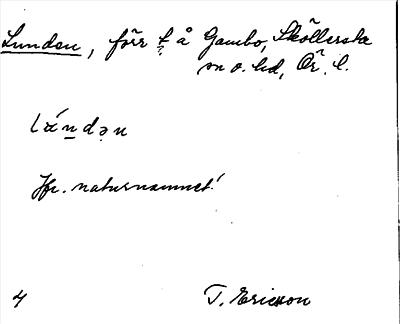 Lunden, förr t å Gambo, Sköllersta
sn o. hd, Ör. l.
Lándən
Jfr. naturnamnet!
4 T. Ericsson